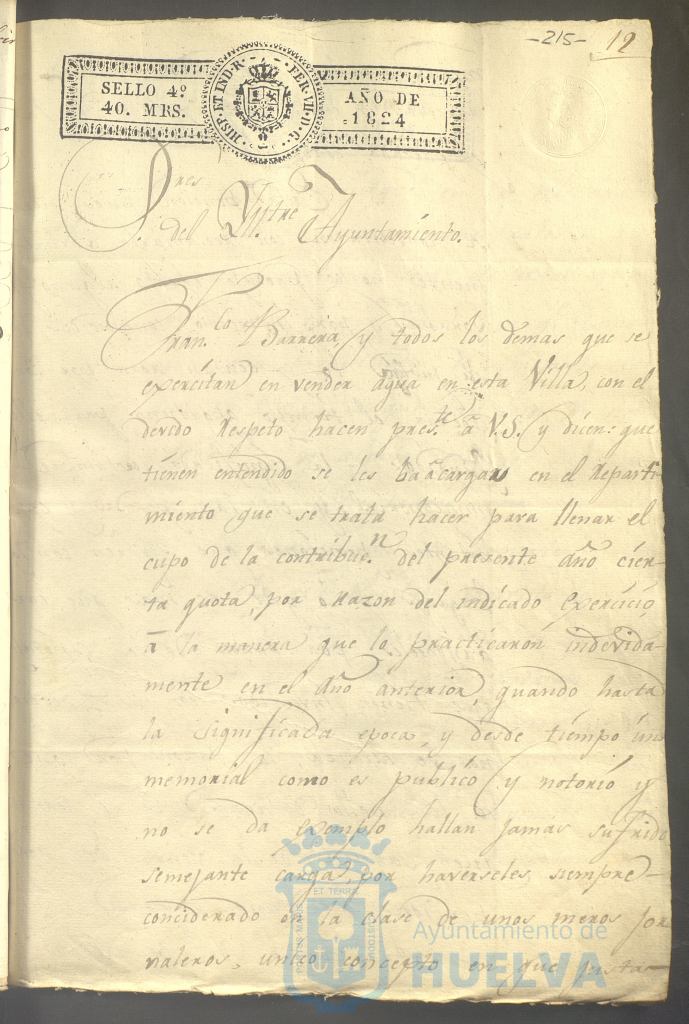 -215- 12
SELLO 4º
40. MRS.
HISP. ET IND. R. FER. VII. D. G.
AÑO DE
1824
S.res
del Yltre Ayuntamiento.
Fran.co Barrera, y todos los demas que se
exercitan en vender agua en esta Villa, con el
devido respeto hacen pres.te a V.S. y dicen: que
tienen entendido se les ba a cargar en el reparti-
miento que se trata hacer para llenar el
cupo de la contribuc.n del presente año cier-
ta quota, por razon del indicado exercicio,
a la manera que lo practicaron indevida-
mente en el año anterior, quando hasta
la significada epoca, y desde tiempo in
memorial como es publico y notorio y
no se da exemplo hallan jamas sufrido
semejante carga, por haverseles siempre
conciderado en la clase de unos meros jor
naleros, unico concepto en que justa-
PORTUS MARIS ET TERRE CUSTODIA
Ayuntamiento de
HUELVA